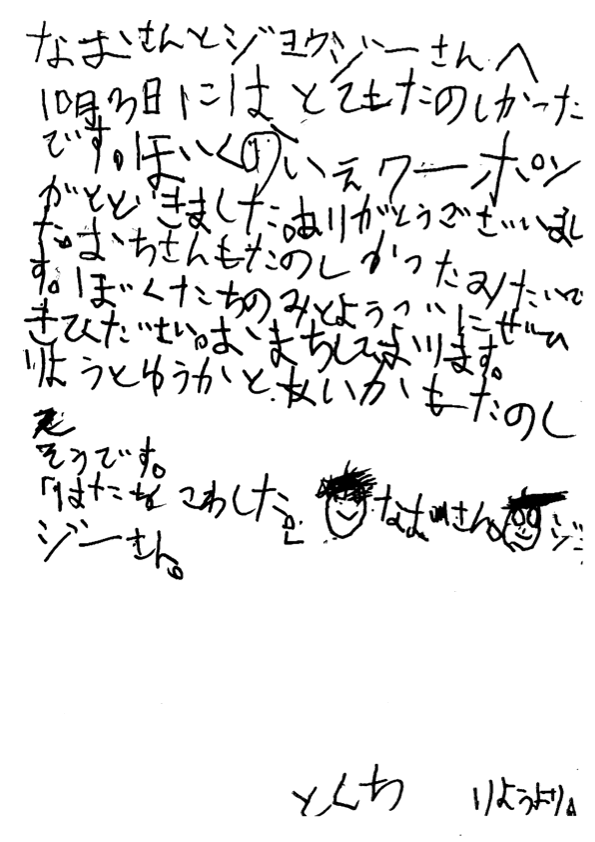 なおさんとジョウジーさんへ
10月3日にはとてもたのしかった
です。ぼくのいえワーポン
がとどきました。ありがとうございまし
た。おちさんもたのしかったみたいで
す。ぼくたちのみとようついにぜひ
きひださい。おまちしております。
りようとゆうかと
もたのし
そうです。
こわした。」なおmさん。ジ
ジーさん。
とんち りようより。